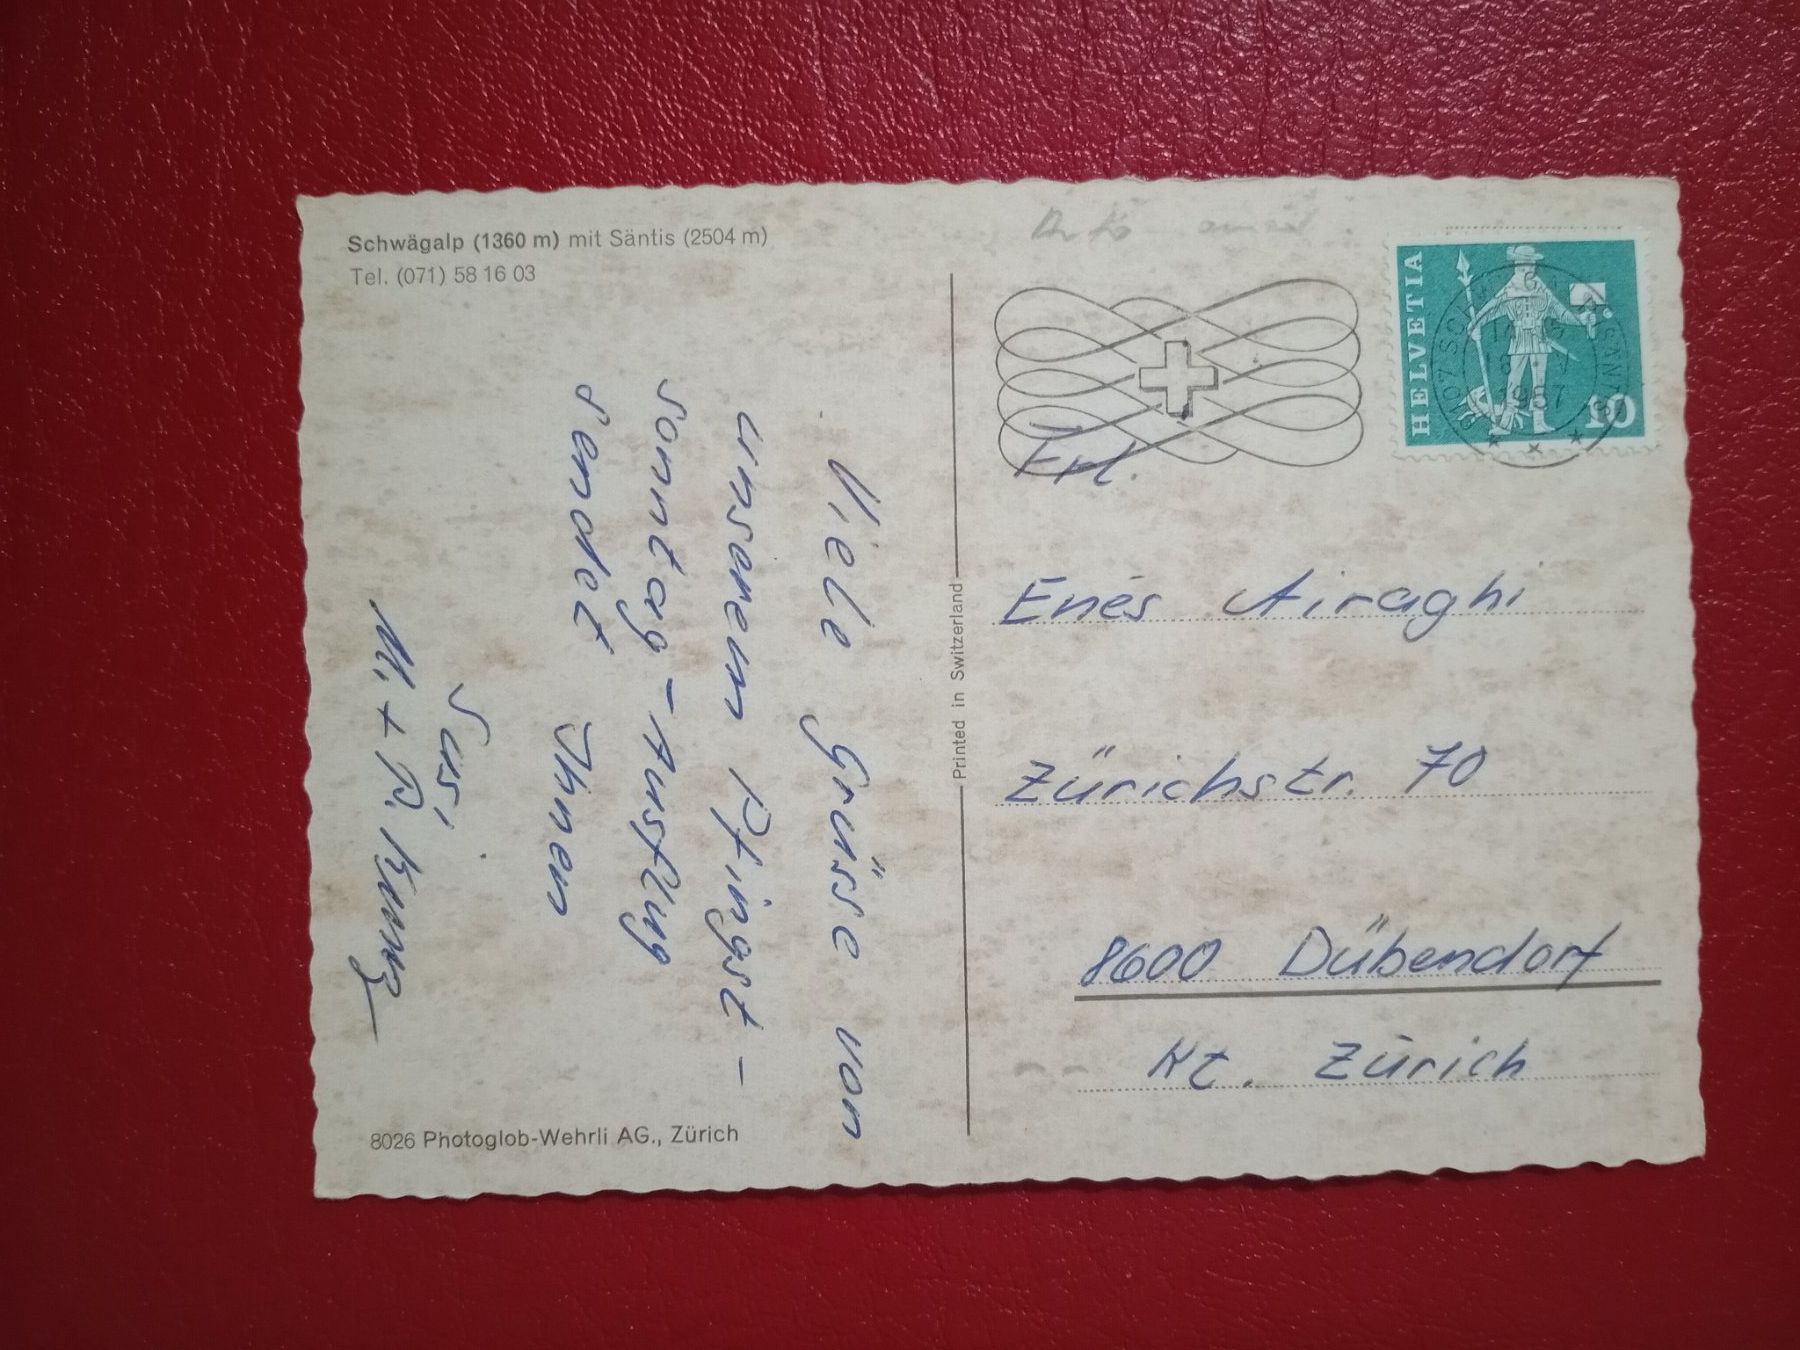 Schwägalp (1360 m) mit Säntis (2504 m)
Tel. (071) 58 16 03
Viele Grüsse von
unserem Pfingst-
sonntag-Ausflug
sendet Ihnen
Susi
M. + R. Kunz
8026 Photoglob-Wehrli AG., Zürich
Printed in Switzerland
HELVETIA
10
1967
Frl.
Enès Airaghi
Zürichstr. 70
8600 Dübendorf
Kt. Zürich